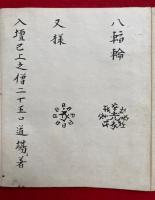 八輻輪
又様
入壇已上之僧二十五口道場着